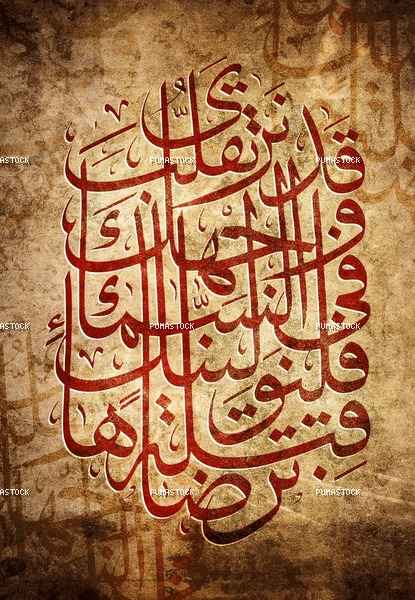 قد نرى تقلب
وجهك
في السماء
فلنولينك
قبلة ترضاها
PUMASTOCK PUMASTOCK PUMASTOCK
PUMASTOCK PUMASTOCK PUMASTOCK
PUMASTOCK PUMASTOCK PUMASTOCK